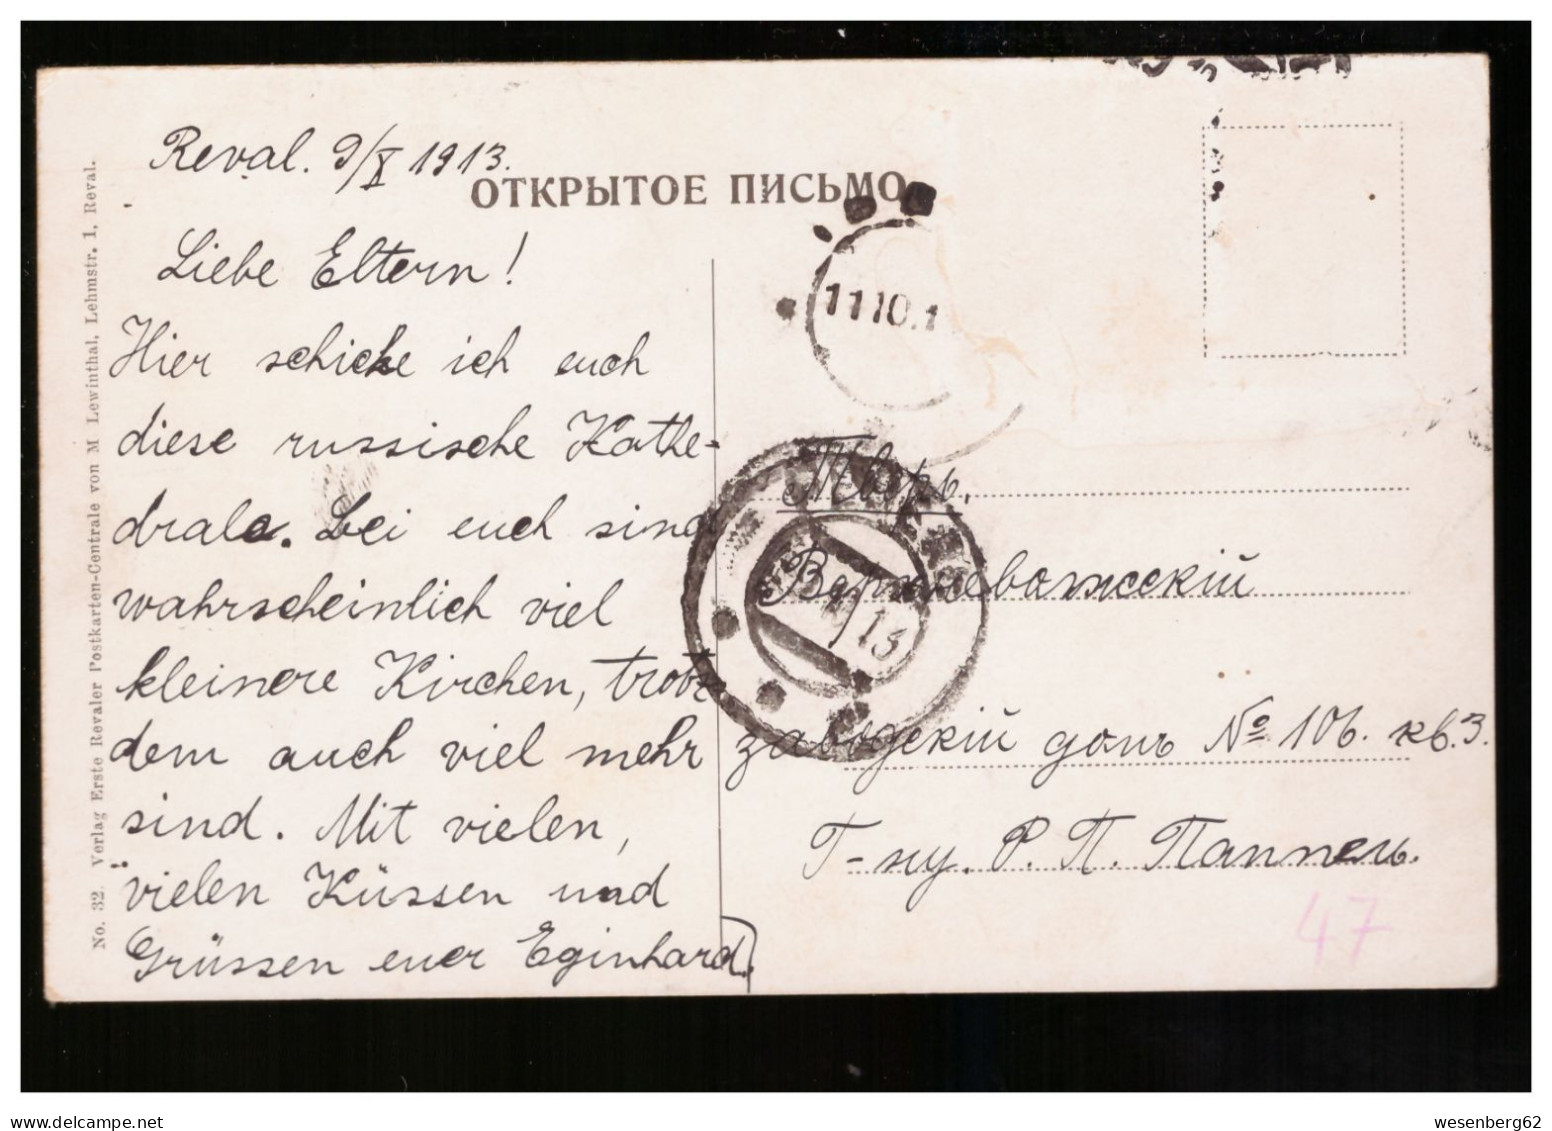 Reval. 9/X 1913.
ОТКРЫТОЕ ПИСЬМО.
Liebe Eltern!
Hier schicke ich euch
diese russische Kathe-
drale. Bei euch sind
wahrscheinlich viel
kleinere Kirchen, trotz
dem auch viel mehr
sind. Mit vielen,
vielen Küssen und
Grüssen euer Eginhard.
No. 32. Verlag Erste Revaler Postkarten-Centrale von M Lewinthal, Lehmstr. 1, Reval.
11 10.1
13
Тверь.
Верхневолжскій
заводскій домъ № 106. кв. 3.
Г-ну. Р. П. Паппель.
47
wesenberg62